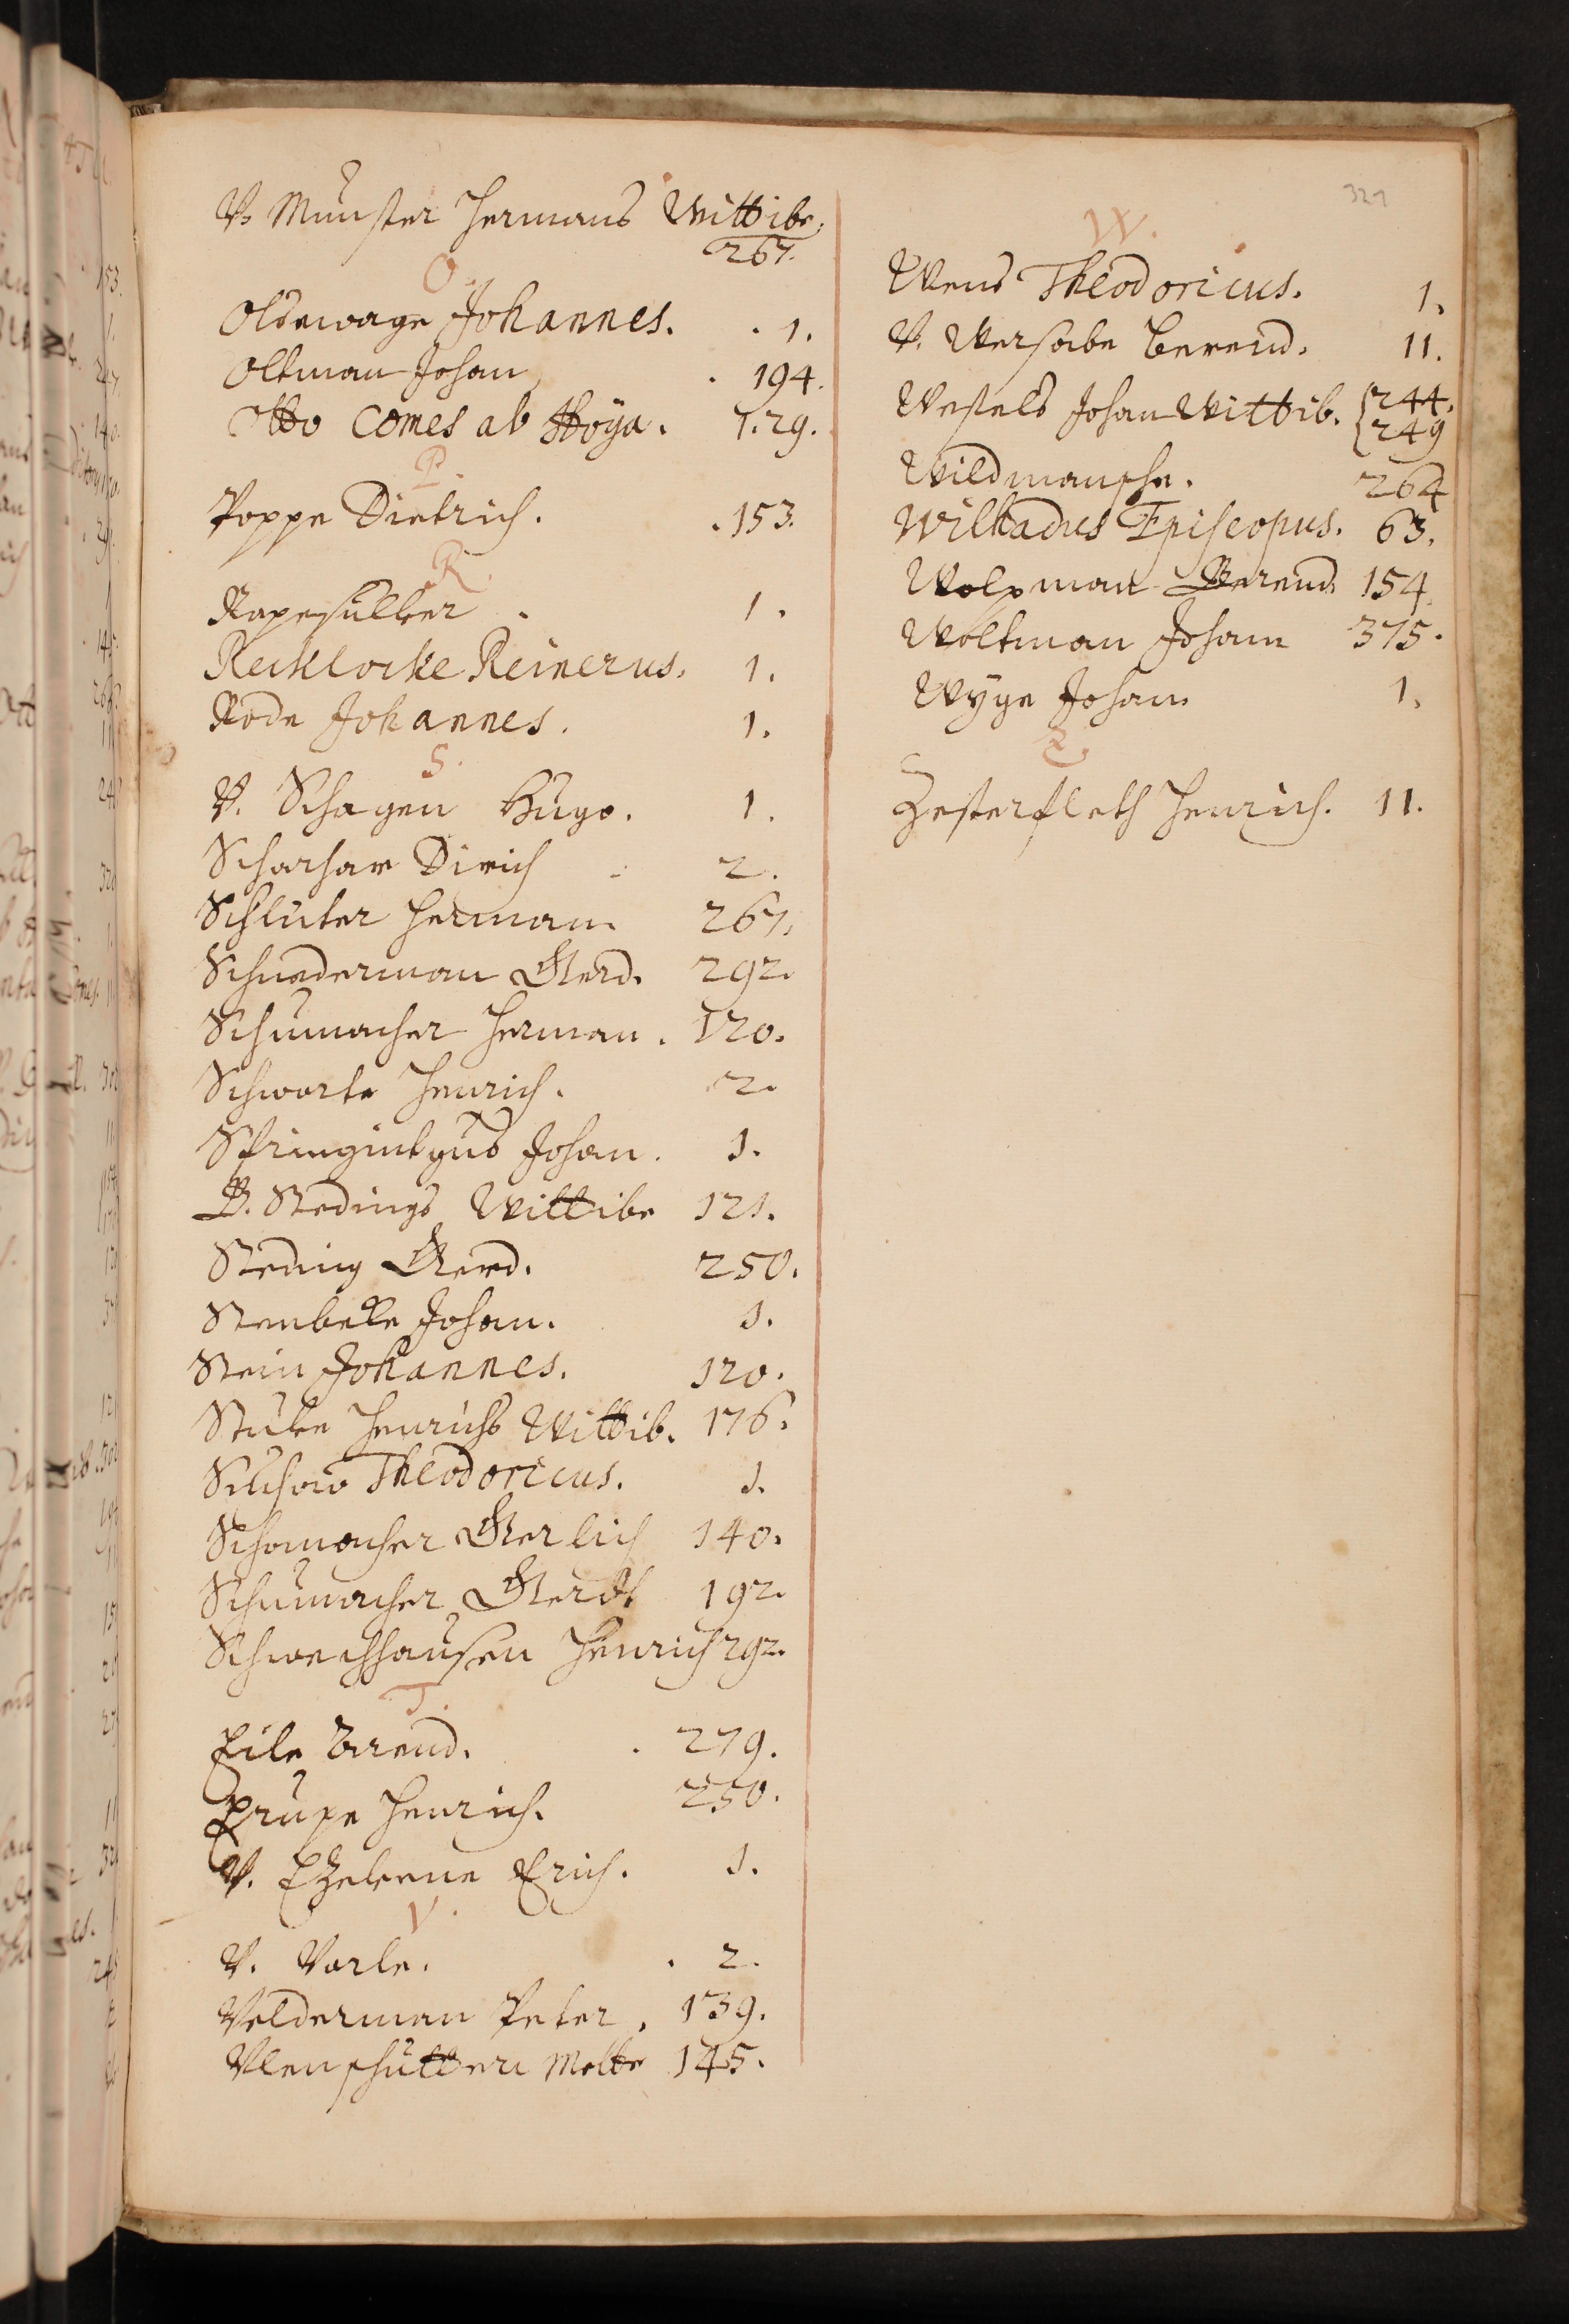 V. Münster Hermans Wittibe.
267.
O.
Oldewage Johannes. 1.
Oltman Johan 194.
Otto Comes ab Hoÿa. 1. 29.
P.
Poppe Dietrich. 153.
R.
Rapesülver 1.
Recklocke Reinerus. 1.
Rode Johannes. 1.
S.
V. Schagen Hugo. 1.
Scharhar Dirich 2.
Schlüter Herman 267.
Schnederman Gerd. 292.
Schumacher Herman. 120.
Schwarte Henrich. 2.
Springintgud Johan. 1.
B. Stedings Wittibe 121.
Steding Gerd. 250.
Stenbeke Johan. 1.
Stein Johannes. 120.
Stüke Henrichs Wittib. 176.
Suchow Theodoricus. 1.
Schomacher Gerlich 140.
Schumacher Gerdt 192.
Schwechhausen Henrich 292.
T.
Tile Berend. 279.
Trupe Henrich. 250.
V. Erich. 1.
V.
V. Varle. 2.
Velderman Peter. 139.
Vlenhütten Mette 145.
327
W.
Wend Theodoricus. 1.
V. Wersabe Berend. 11.
Wessels Johan Wittib. 244.
249
Wildmansche. 264
Wilhadus Episcopus. 63.
Wolpman Berend 154.
Woltman Johan 375.
Wyge Johan 1.
Z.
Zesterfleth Henrich. 11.